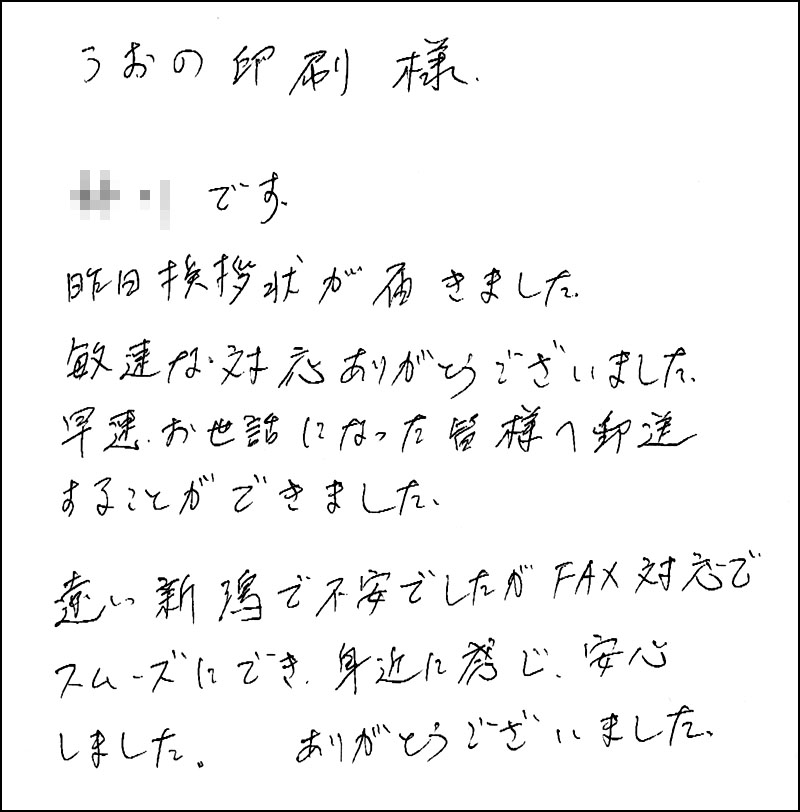 うおの印刷 様.
です.
昨日挨拶状が届きました.
敏速な対応ありがとうございました.
早速.お世話になった皆様へ郵送
することができました.
遠い新潟で不安でしたがFAX対応で
スムーズにでき.身近に感じ.安心
しました。 ありがとうございました.